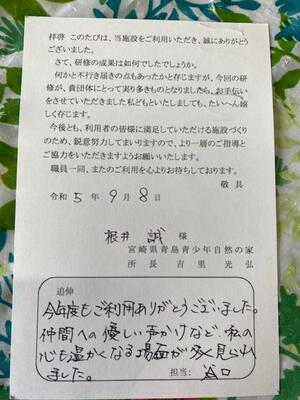 拝啓 このたびは、当施設をご利用いただき、誠にありがとう
ございました。
さて、研修の成果は如何でしたでしょうか。
何かと不行き届きの点もあったかと存じますが、今回の研
修が、貴団体にとって実り多きものとなりましたなら、お手伝い
をさせていただきました私どもといたしましても、たいへん嬉
しく存じます。
今後とも、利用者の皆様に満足していただける施設づくり
のため、鋭意努力してまいりますので、より一層のご指導と
ご協力をいただきますようお願いいたします。
職員一同、またのご利用を心よりお待ちしております。
敬具
令和 5年 9月 8日
根井 誠 様
宮崎県青島青少年自然の家
所長 吉里 光弘
追伸
今年度もご利用ありがとうございました。
仲間への優しい声かけなど、私の
心も温かくなる場面が多く見られ
ました。 担当: 谷口